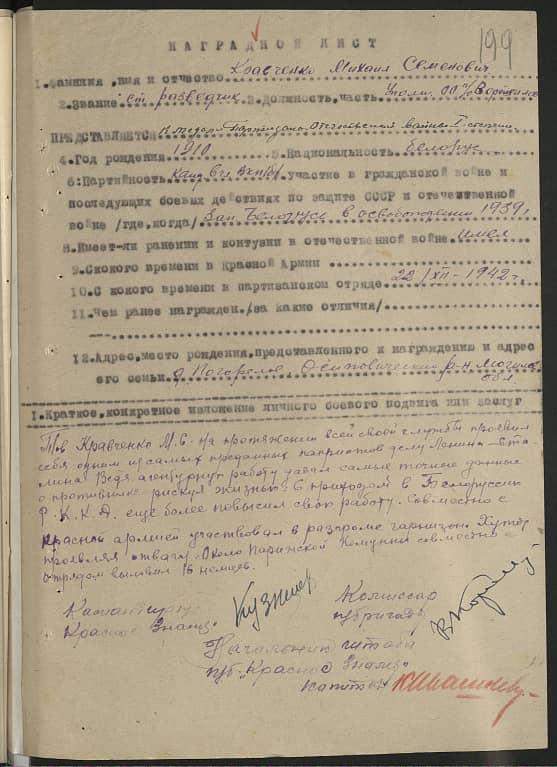 199
НАГРАДНОЙ ЛИСТ
1.Фамилия, имя и отчество Кравченко Михаил Семенович
2.Звание ст разведчик 3.Должность, часть
ПРЕДСТАВЛЯЕТСЯ К медали Партизан Отечественной войны I степени
4.Год рождения 1910 5.Национальность белорус
6:Партийность канд ВКП(б) участие в гражданской войне и
последующих боевых действиях по защите СССР и отечественной
войне /где,когда/ Зап Белорусс в освобождении 1939г
8.Имеет-ли ранении и контузии в отечественной войне имел
9.Скокого времени в Красной Армии
10.С кокого времени в партизанском отряде 22/XII-1942г
11.Чем ранее награжден./за какие отличия/
12.Адрес,место рождения,представленного к награждению и адрес
его семьи д Погорелое Осиповический р-н Могилев
обл
I.Краткое,конкретное изложение личного боевого подвига или заслуг
Тов Кравченко М.С. на протяжении всей своей службы проявил
себя одним из самых преданных патриотов делу Ленина-Ста-
лина Ведя агентурную работу давал самые точные данные
о противнике рискуя жизнью. С приходом в Белоруссию
Р.К.К.А. еще более повысил свою работу. Совместно с
Красной армией участвовал в разгроме гарнизона
проявляя отвагу. Около Паричской Коммуны совместно с
отрядом выловил 16 немцев.
Красное Знамя
Комиссар
п/бригады
Начальник штаба
п/б "Красное Знамя"
капитан